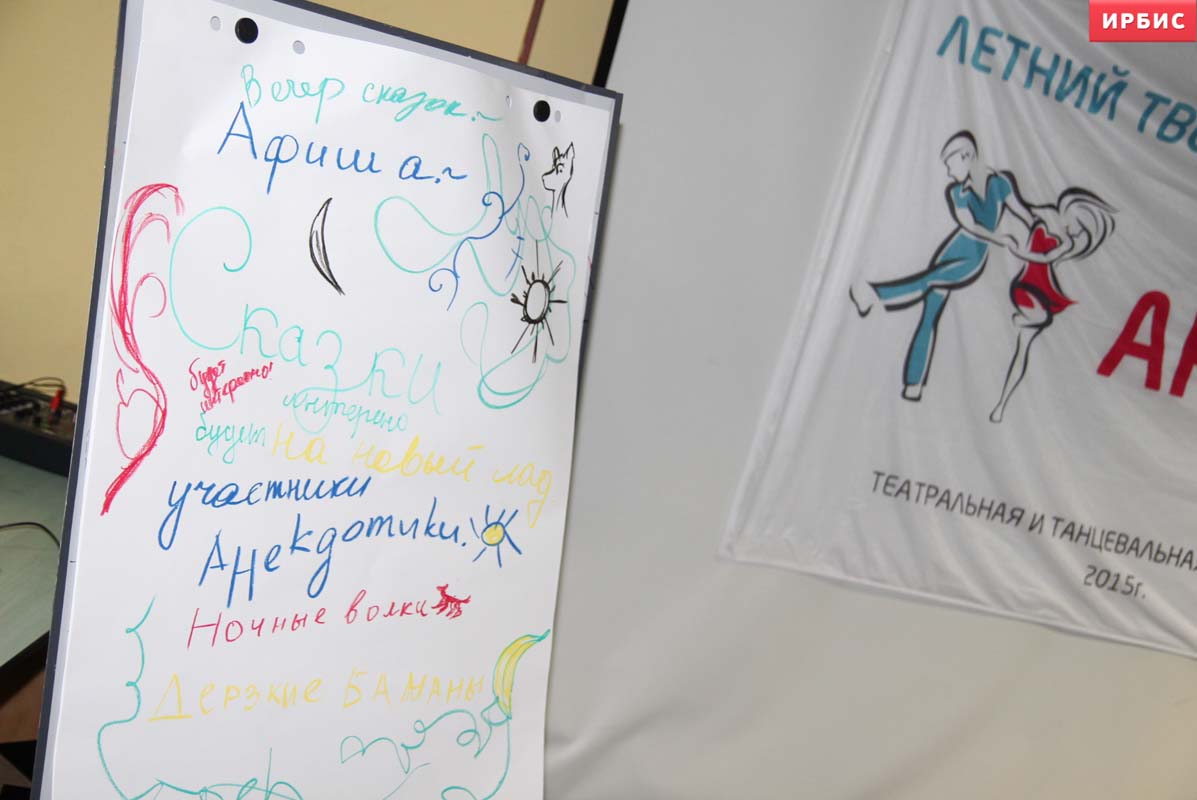 Вечер сказок.~
Афиша.~
Сказки
будет
интересно!
будет
на новый лад
участники
Анекдотики.
Ночные волки
Дерзкие БАНАНЫ
ИРБИС
ЛЕТНИЙ ТВО
АР
ТЕАТРАЛЬНАЯ И ТАНЦЕВАЛЬНАЯ
2015г.